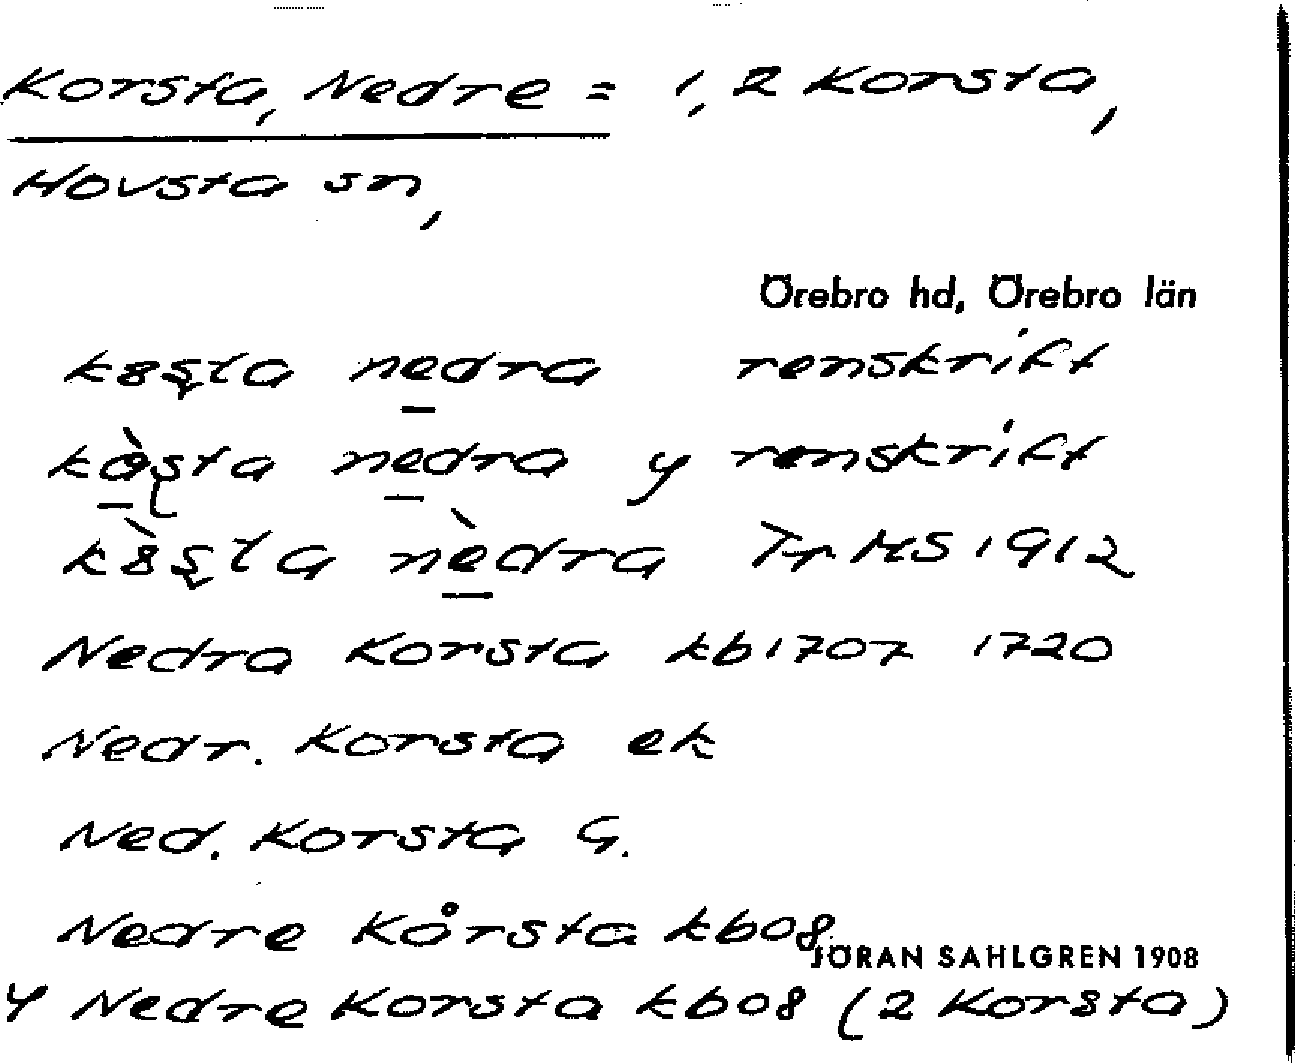 Korsta, Nedre = 1, 2 Korsta,
Hovsta sn,
Örebro hd, Örebro län
nedra renskrift
nedra y renskrift
nèdra MS 1912
Nedra Korsta kb 1707 1720
Nedr. Korsta ek
Ned. Korsta G.
Nedre Kårsta kb 08.
JÖRAN SAHLGREN 1908
y Nedre Korsta kb 08 (2 Korsta)